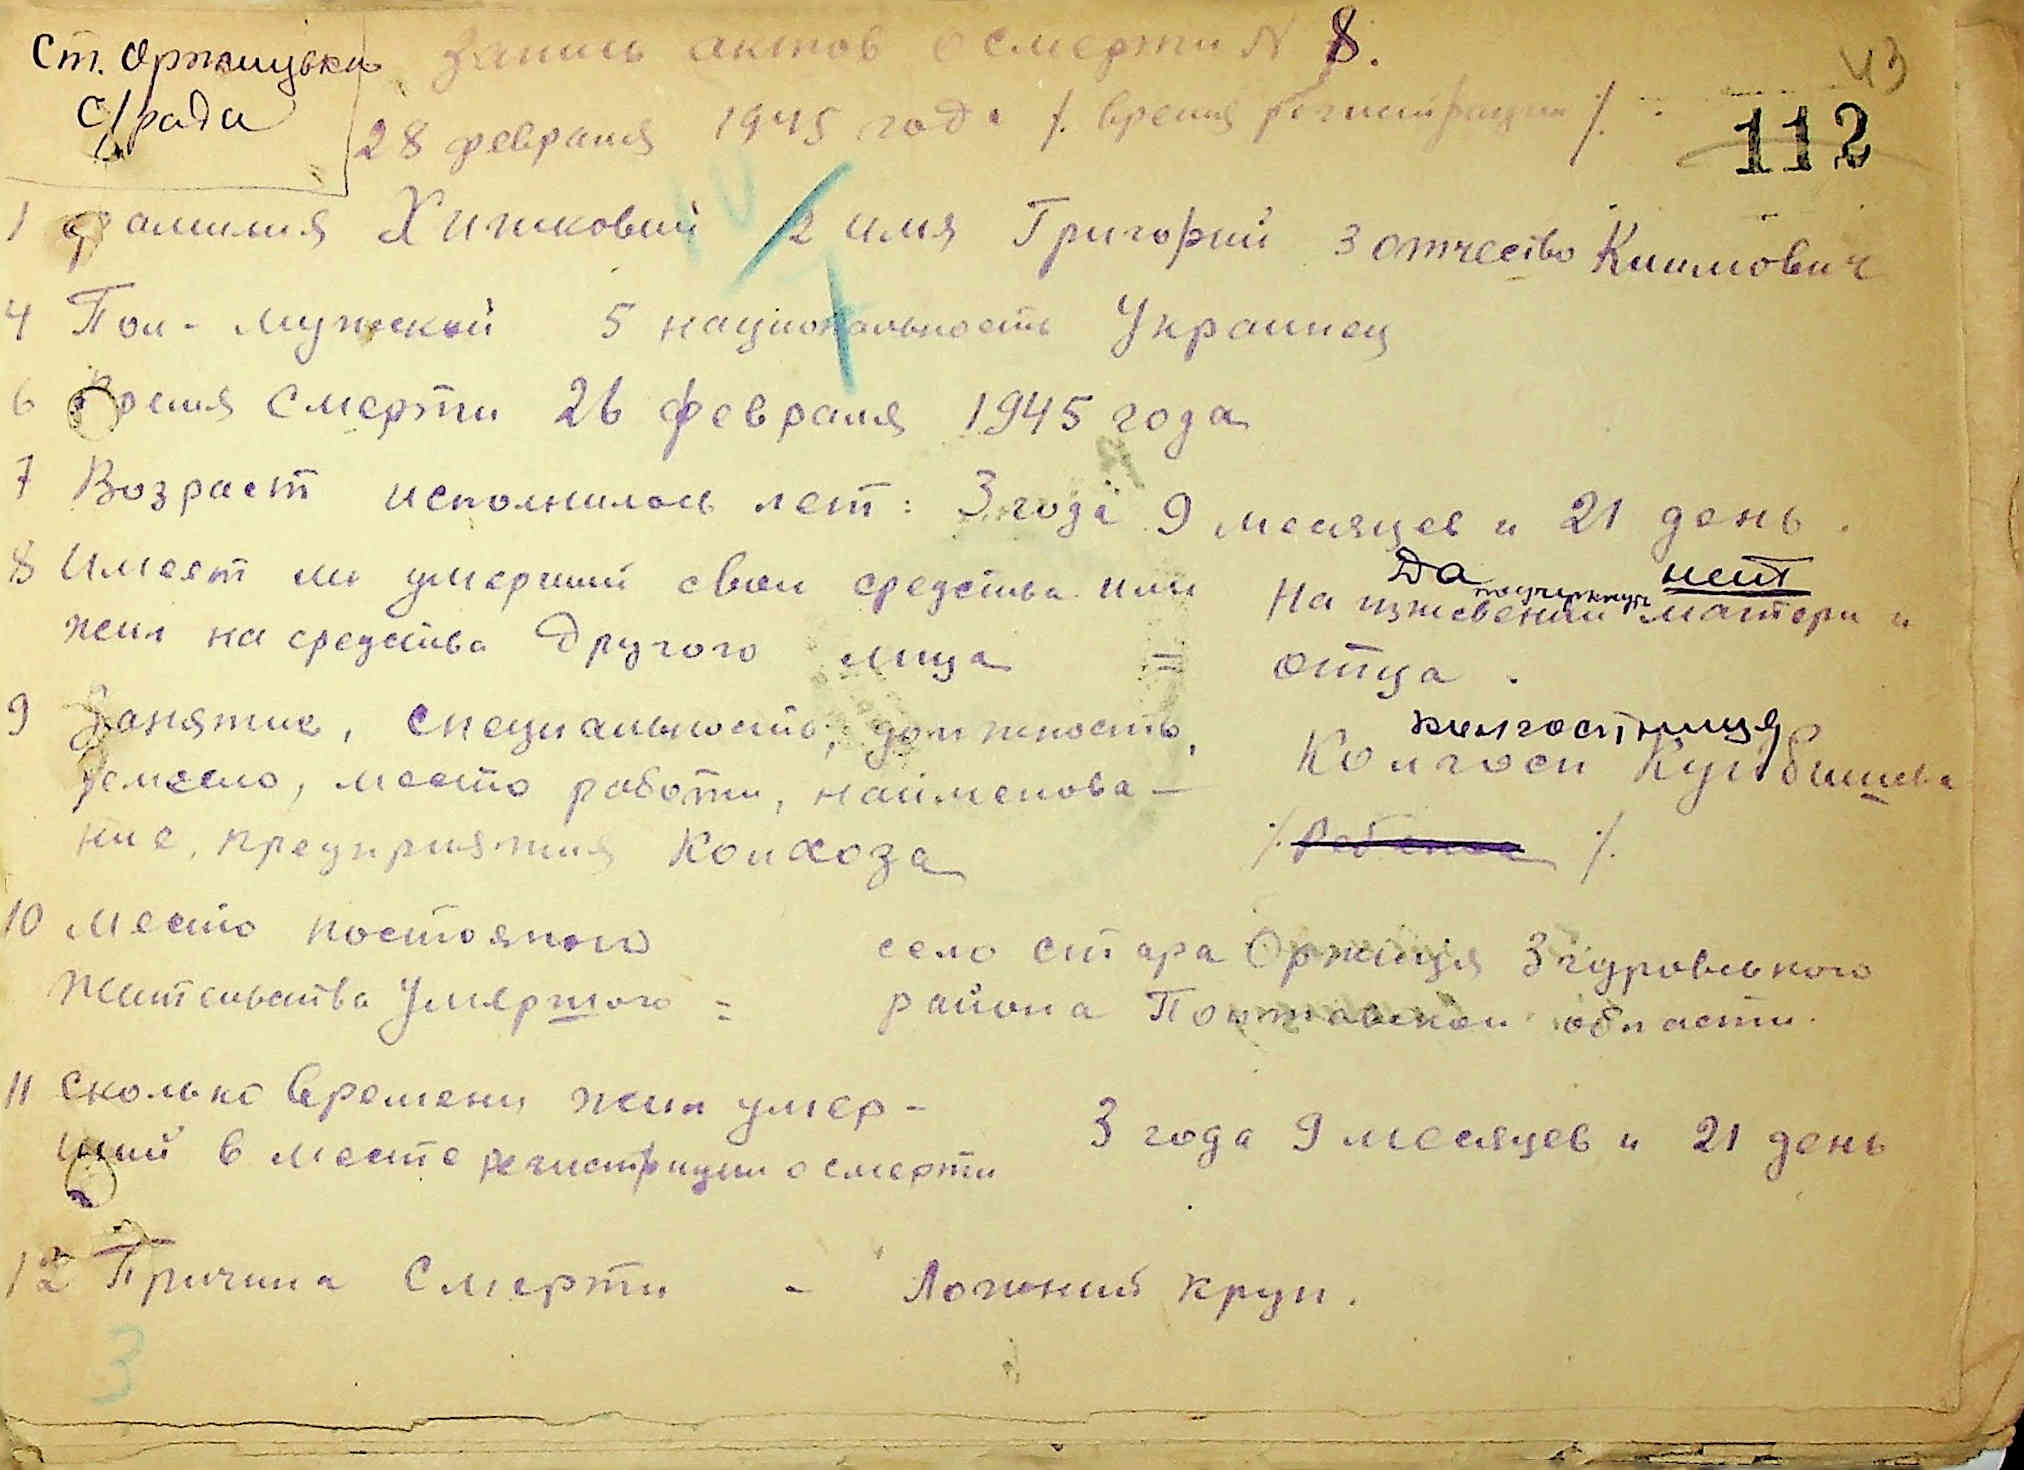 Ст. Оржицька
с/рада
Запись актов о смерти N 8.
43
28 февраля 1945 года /. время регистрации /.
112
1 фамилия Хижковий 2 имя Григорий 3 отчество Климович
4 Пол - мужской 5 национальность Украинец
6 Время Смерти 26 февраля 1945 года
7 Возраст исполнилось лет: 3 года 9 месяцев и 21 день.
Да подчеркнуть нет
8 Имеет ли умерший свои средства или На иждевении матери и
жил на средства другого лица = отца.
9 Занятие, специальность, должность, колгостница
ремесло, место работи, наименова- Колгосп Куйбишева
ние, предприятия Колхоза /. Ребенок /.
10 Место постояного село стара Оржиця Згуровського
Жительства Умяршого = района Полтавской области.
11 Сколько времени жил умер-
ший в месте регистрации о смерти 3 года 9 месяцев и 21 день
12 Причина Смерти - Ложний круп.
3